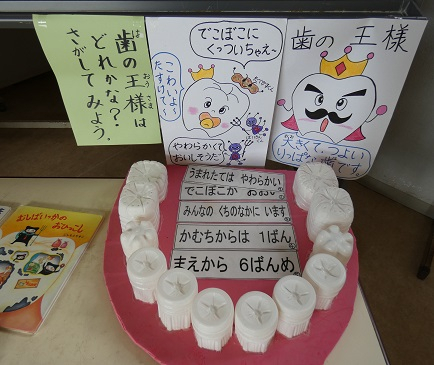 歯の王様は
どれかな?
さがしてみよう。
でこぼこに
くっついちゃえ〜
こわいよ〜
たすけて〜
やわらかくて
おいしそうだ
歯の王様
大きくて、つよい
りっぱな歯です
うまれたては やわらかい
でこぼこが おおい
みんなの くちのなかに います
かむちからは 1ばん
まえから 6ばんめ